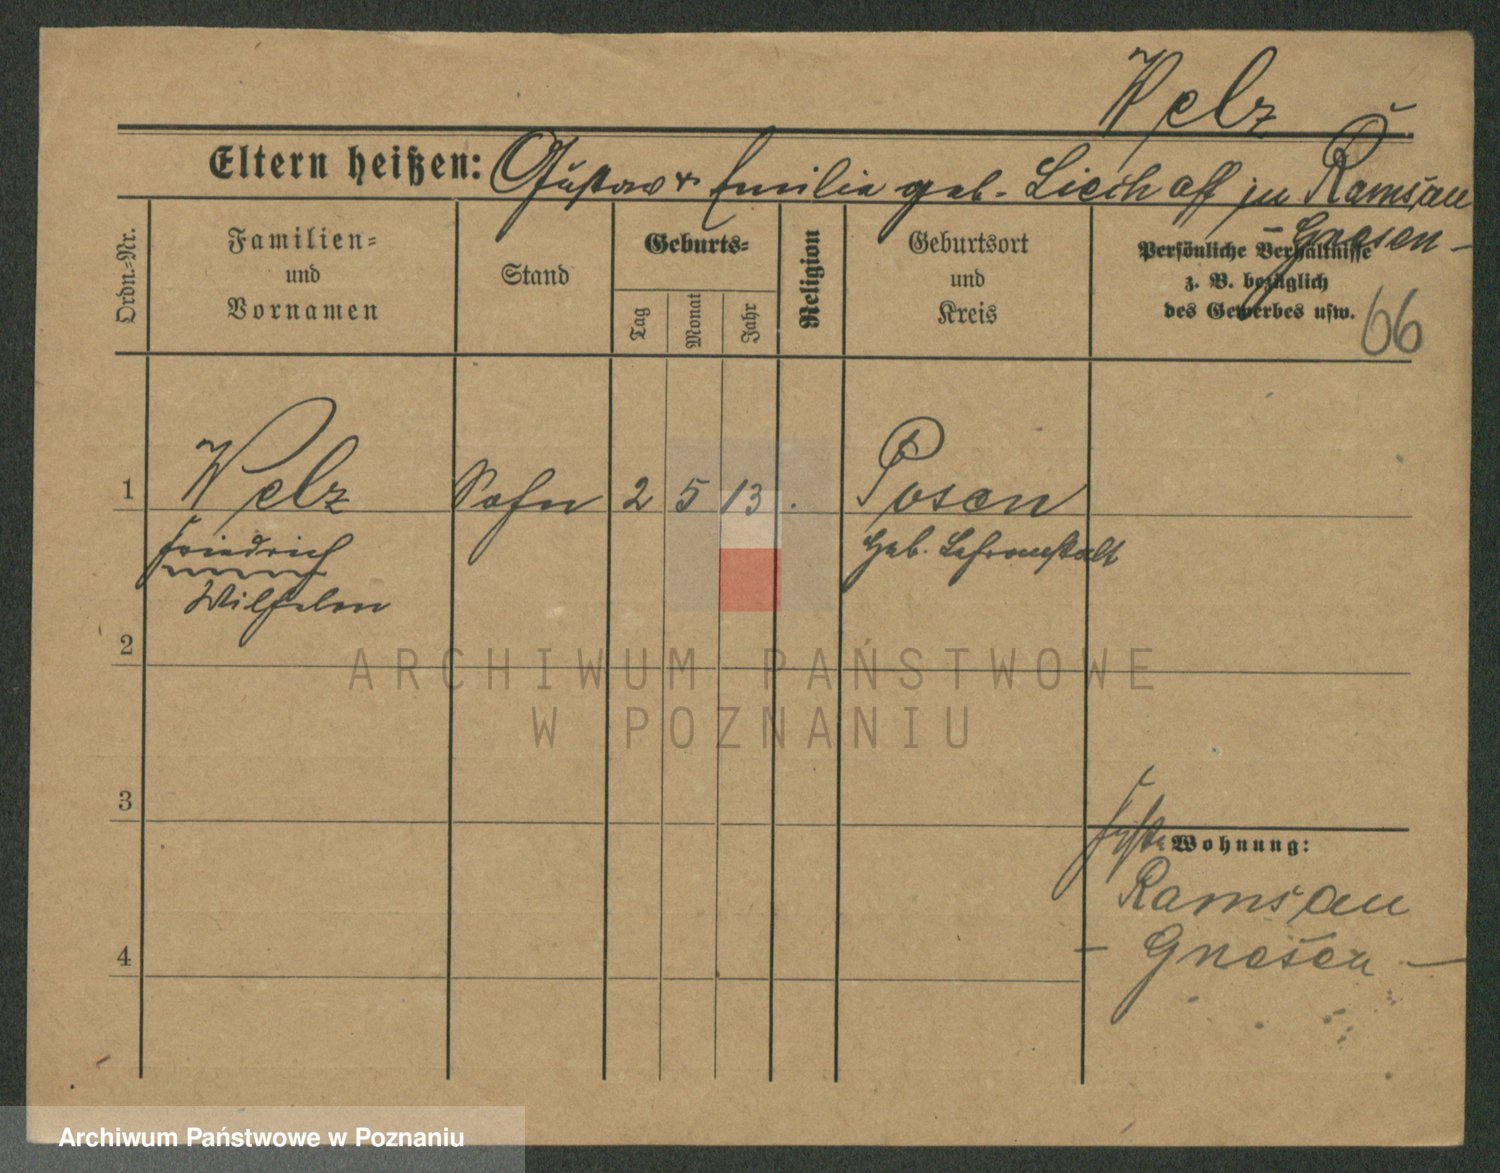 Welz
Eltern heißen: Gustav & Emilie geb. Liechaff zu Ramsau
- Gnesen -
Ordn.-Nr.
Familien=
und
Vornamen
Stand
Geburts=
Tag
Monat
Jahr
Religion
Geburtsort
und
Kreis
Persönliche Verhältnisse
z. B. bezüglich
des Gewerbes usw.
66
1 Welz Sohn 2 5 13 . Posen
Friedrich
Geb. Lehranstalt
Wilhelm
2
ARCHIWUM PAŃSTWOWE
W POZNANIU
3
Wohnung:
Ramsau
4
- Gnesen -
Archiwum Państwowe w Poznaniu